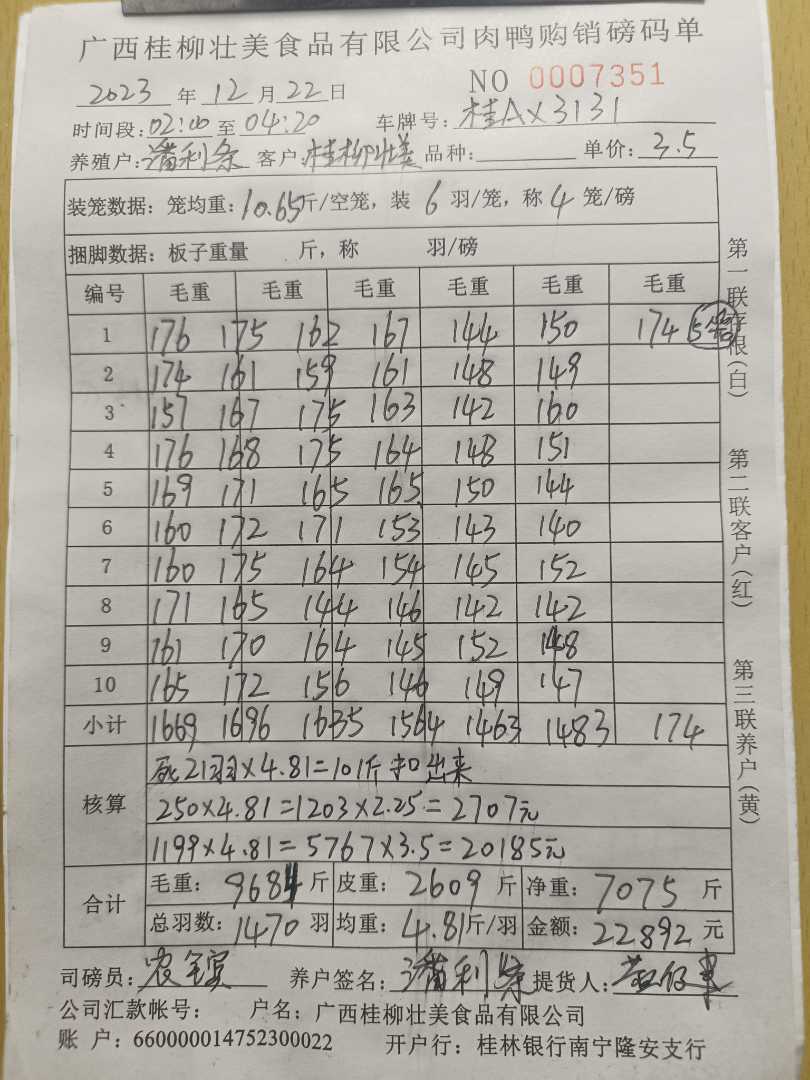 广西桂柳壮美食品有限公司肉鸭购销磅码单
2023 年 12 月 22 日 NO 0007351
时间段: 02:00 至 04:20 车牌号: 桂AX3131
养殖户: 潘利条 客户: 桂柳壮美 品种: 单价: 3.5
装笼数据: 笼均重: 10.65 斤/空笼, 装 6 羽/笼, 称 4 笼/磅
捆脚数据: 板子重量 斤, 称 羽/磅
编号 毛重 毛重 毛重 毛重 毛重 毛重
1 176 175 162 167 144 150 174 5笼
2 174 161 159 161 148 149
3 157 167 175 163 142 160
4 176 168 175 164 148 151
5 169 171 165 165 150 144
6 160 172 171 153 143 140
7 160 175 164 154 145 152
8 171 165 144 146 142 142
9 161 170 164 145 152 148
10 165 172 156 146 149 147
小计 1669 1696 1635 1564 1463 1483 174
核算
死21羽×4.81=101斤 扣出来
250×4.81=1203×2.25=2707元
1199×4.81=5767×3.5=20185元
合计
毛重: 9684 斤 皮重: 2609 斤 净重: 7075 斤
总羽数: 1470 羽 均重: 4.81 斤/羽 金额: 22892 元
司磅员: 养户签名: 潘利条 提货人:
公司汇款帐号: 户名: 广西桂柳壮美食品有限公司
账 户: 660000014752300022 开户行: 桂林银行南宁隆安支行
第一联存根(白)
第二联客户(红)
第三联养户(黄)